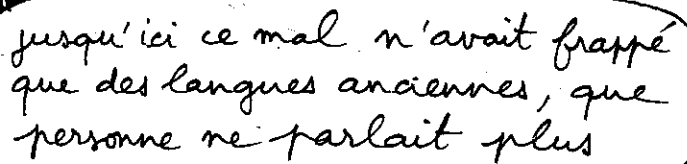 jusqu'ici ce mal n'avait frappé
que des langues anciennes, que
personne ne parlait plus